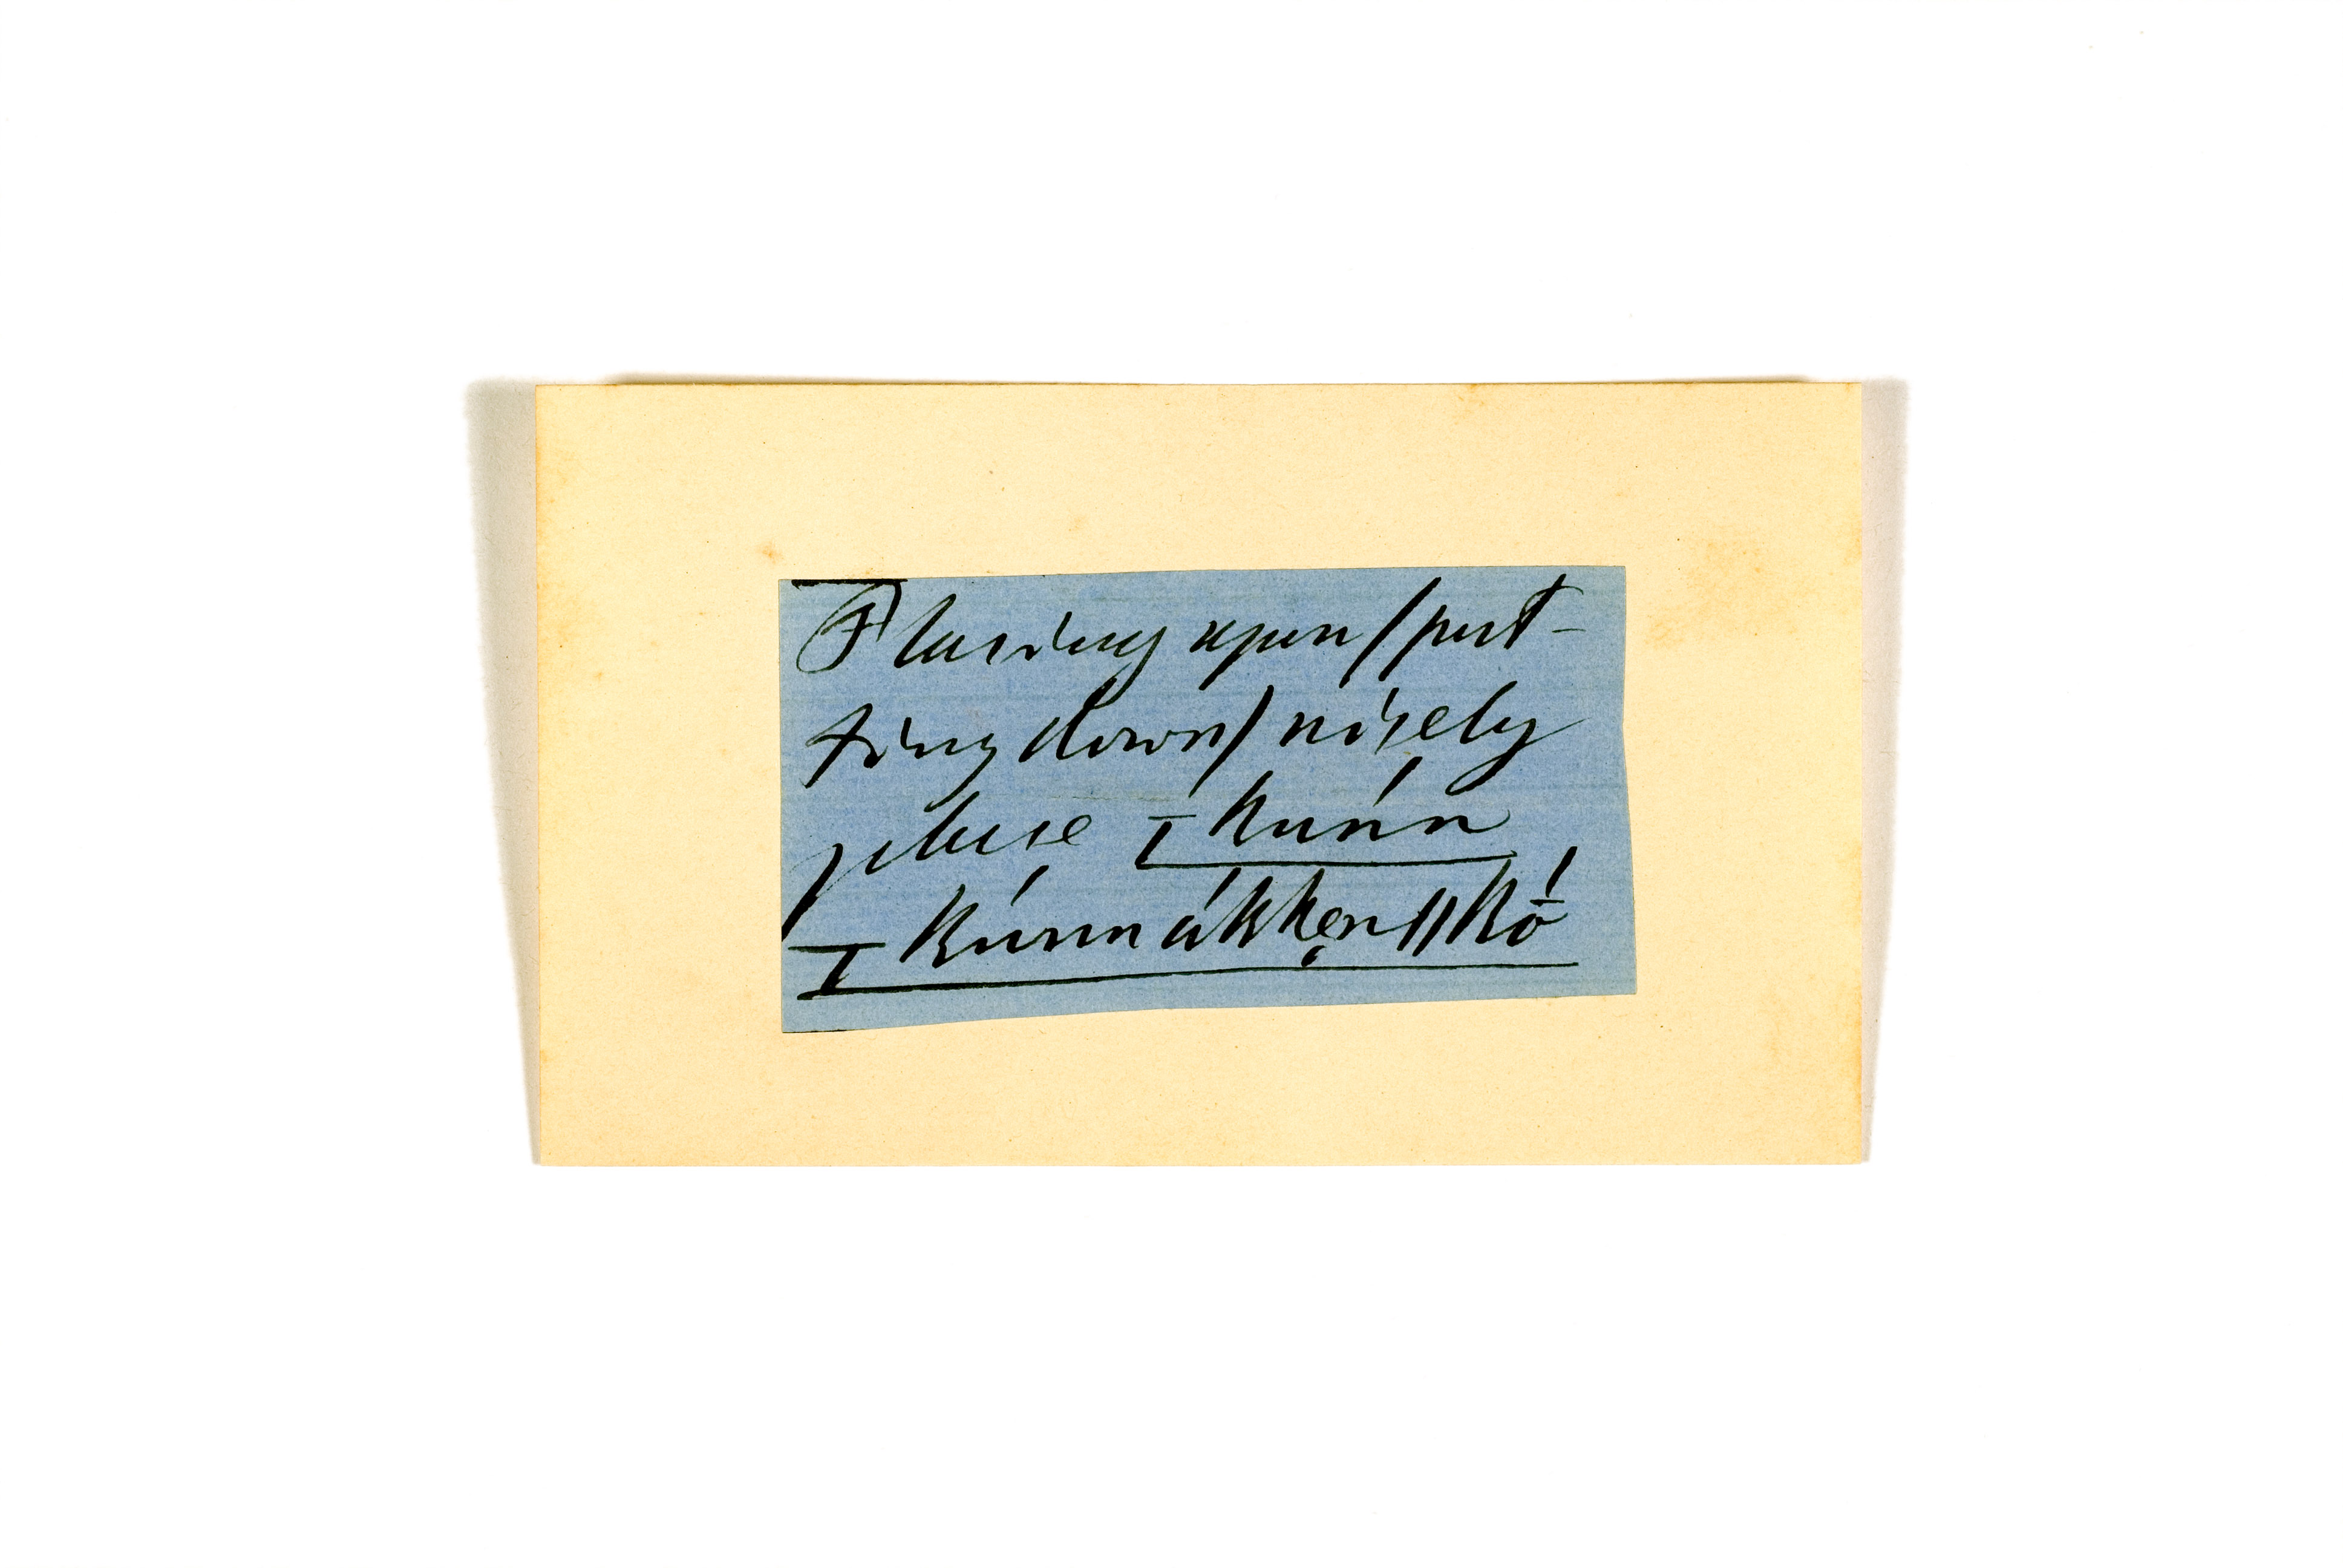 Plasing upon/put-
ting down/nisely
plese I kunn
I kúnnákken//kó